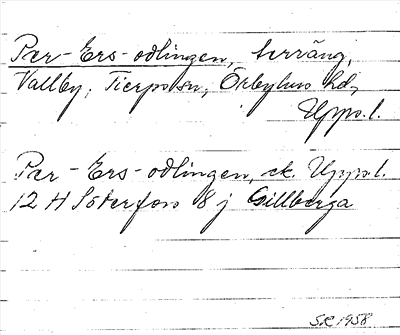 Per-Ers-odlingen, terräng,
Vallby, Tierps sn, Örbyhus hd,
Uppl.
Per-Ers-odlingen, ek. Uppl.
12 H Söderfors 8 j Gillberga
SR 1958